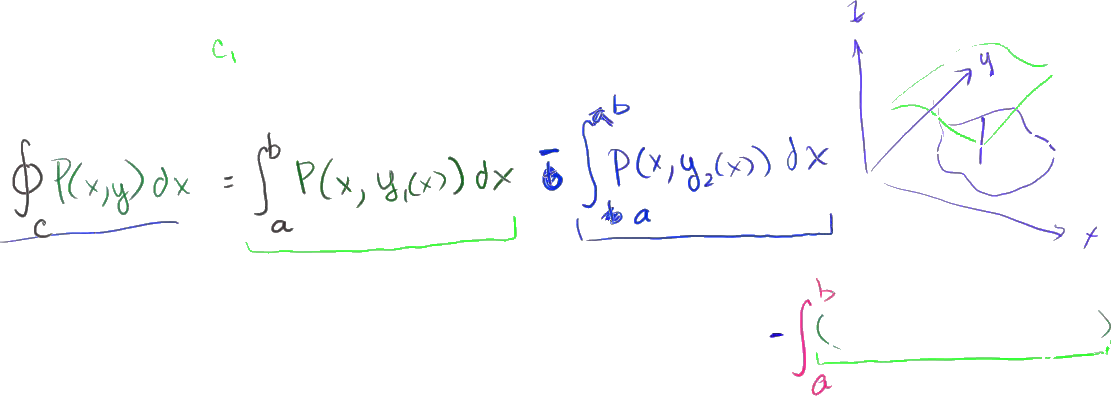 C₁
z
y
∮_C P(x,y) dx = ∫_a^b P(x, y₁(x)) dx - ∫_a^b P(x, y₂(x)) dx
x
- ∫_a^b ( )